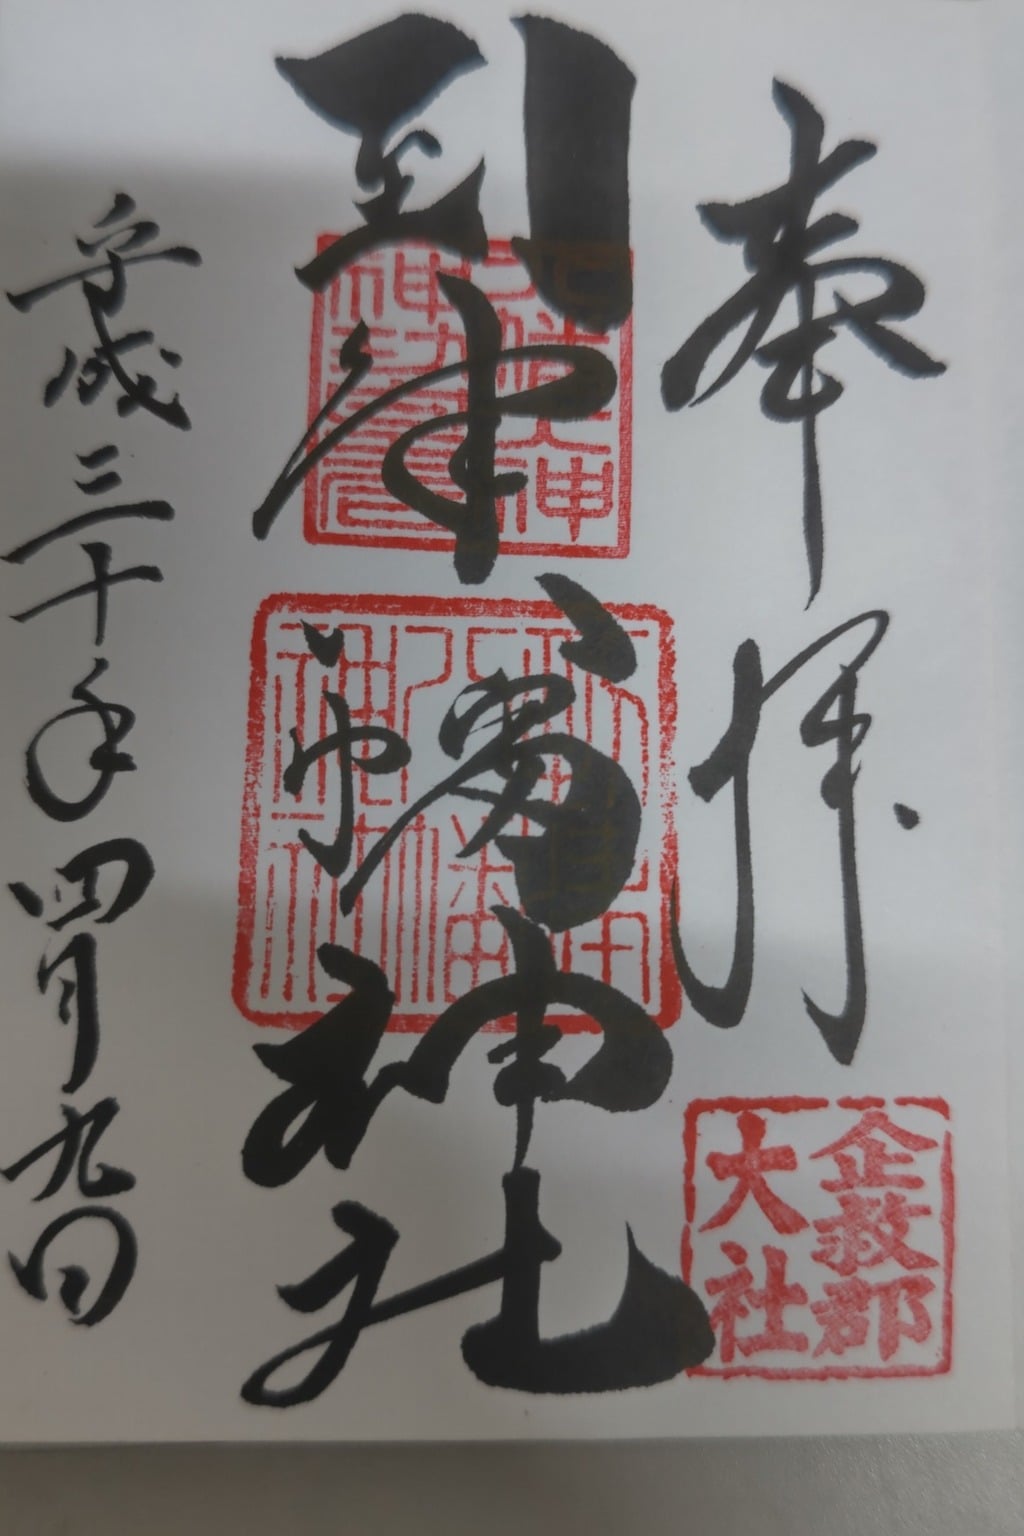 奉拝
企救郡
大社
到津八幡神社
八幡
神社
平成三十年四月九日